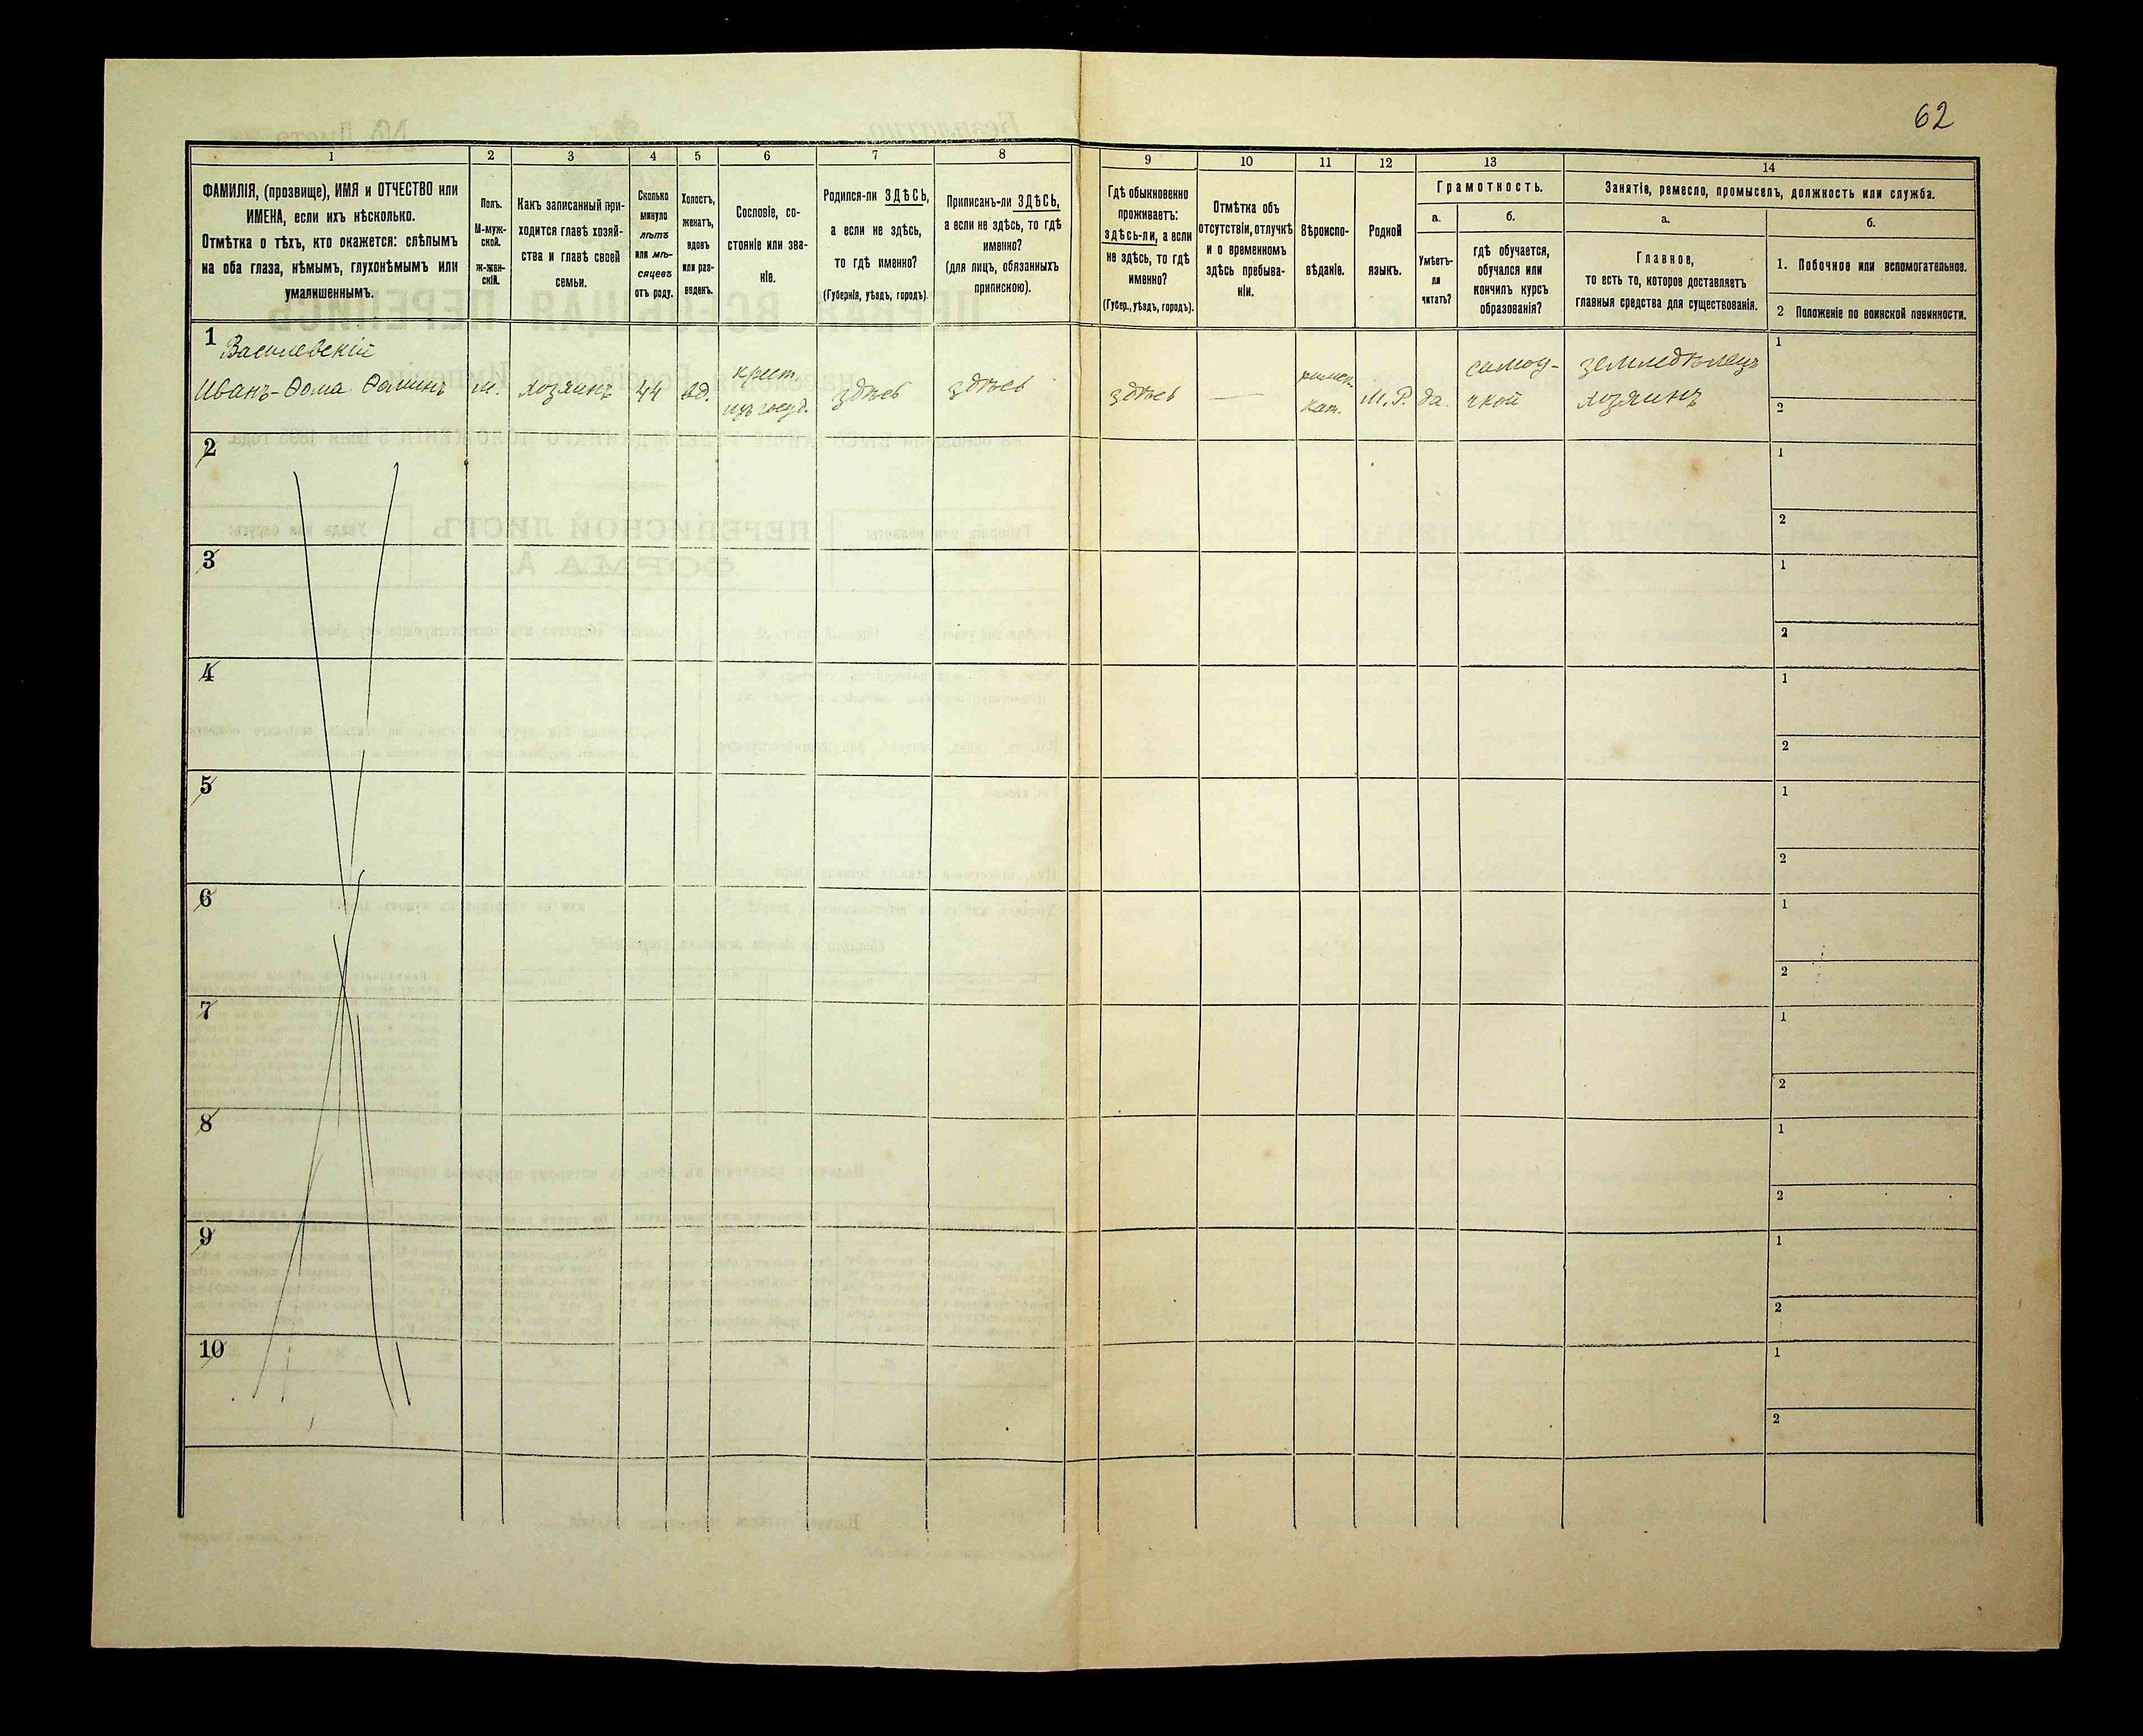 62
1 2 3 4 5 6 7 8 9 10 11 12 13 14
ФАМИЛІЯ, (прозвище), ИМЯ и ОТЧЕСТВО или
ИМЕНА, если ихъ нѣсколько.
Отмѣтка о тѣхъ, кто окажется: слѣпымъ
на оба глаза, нѣмымъ, глухонѣмымъ или
умалишеннымъ.
Полъ.
М-муж-
ской.
Ж-жен-
скій.
Какъ записанный при-
ходится главѣ хозяй-
ства и главѣ своей
семьи.
Сколько
минуло
лѣтъ
или мѣ-
сяцевъ
отъ роду.
Холостъ,
женатъ,
вдовъ
или раз-
веденъ.
Сословіе, со-
стояніе или зва-
ніе.
Родился-ли ЗДѢСЬ,
а если не здѣсь,
то гдѣ именно?
(Губернія, уѣздъ, городъ).
Приписанъ-ли ЗДѢСЬ,
а если не здѣсь, то гдѣ
именно?
(для лицъ, обязанныхъ
припискою).
Гдѣ обыкновенно
проживаетъ:
здѣсь-ли, а если
не здѣсь, то гдѣ
именно?
(Губер., уѣздъ, городъ).
Отмѣтка объ
отсутствіи, отлучкѣ
и о временномъ
здѣсь пребыва-
ніи.
Вѣроиспо-
вѣданіе.
Родной
языкъ.
Грамотность.
а.
Умѣетъ-
ли
читать?
б.
гдѣ обучается,
обучался или
кончилъ курсъ
образованія?
Занятіе, ремесло, промыселъ, должность или служба.
а.
Главное,
то есть то, которое доставляетъ
главныя средства для существованія.
б.
1. Побочное или вспомогательное.
2 Положеніе по воинской повинности.
1
Василевскій
Иванъ-Ѳома Ѳоминъ
м.
хозяинъ
44
вд.
крест.
изъ госуд.
здѣсь
здѣсь
здѣсь
—
римск.
кат.
М.Р.
да
самоу-
чкой
земледѣлецъ
хозяинъ
1
2
2
1
2
3
1
2
4
1
2
5
1
2
6
1
2
7
1
2
8
1
2
9
1
2
10
1
2